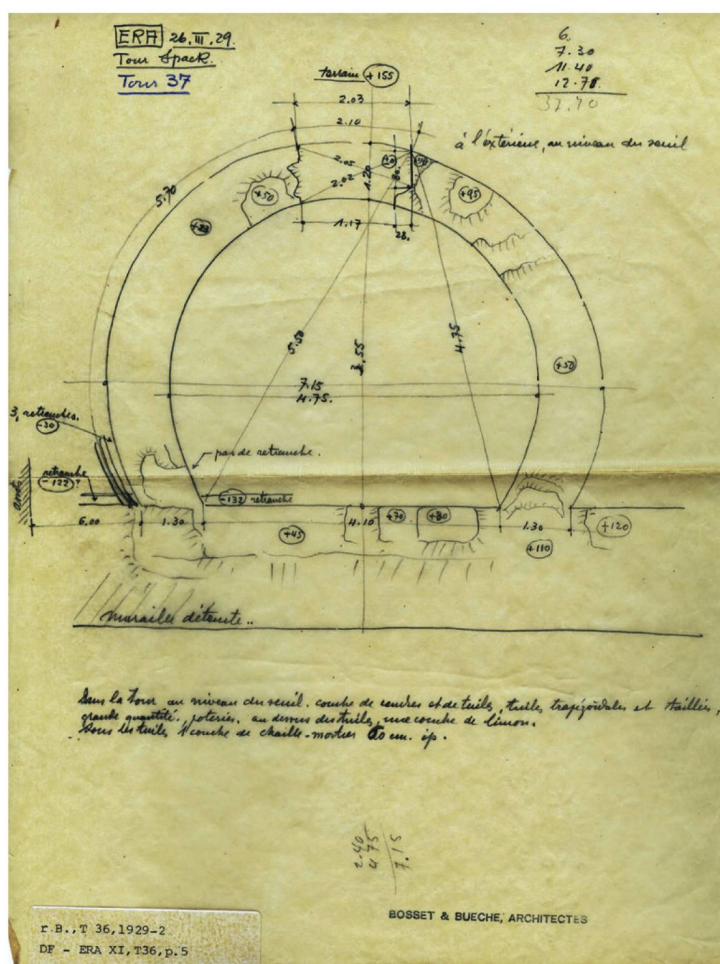 ERA 26.III.29.
Tour Spack.
Tour 37
6.
7.30
11.40
12.70
37.40
terrain +155
2.03
2.10
à l'extérieur, au niveau du seuil
2.05
2.02
1.20
80.
+50
+95
5.70
1.17
28.
5.50
3.55
4.75
7.15
4.75.
+50
3, retranches.
-30
pas de retranche.
retranche
-122?
-132 retranche
6.00
1.30
4.10
+70
+80
1.30
+120
+45
+110
murailles détruite..
Dans la Tour au niveau du seuil. couche de cendres et de tuiles, tuiles trapézoïdales et taillées,
grande quantité, poteries, au dessus des tuiles, une couche de limon.
Sous les tuiles 1 couche de chaille-mortier 20 cm. ép.
2.40
4.75
7.15
BOSSET & BUECHE, ARCHITECTES
r.B.,T 36,1929-2
DF - ERA XI,T36,p.5